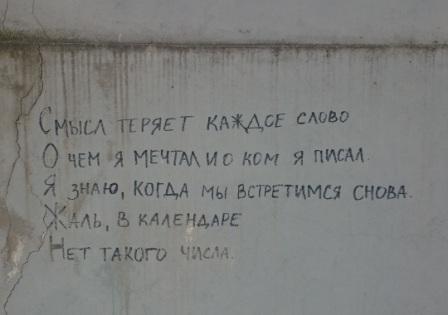 Смысл теряет каждое слово
О чем я мечтал и о ком я писал.
Я знаю, когда мы встретимся снова.
Жаль, в календаре
Нет такого числа.